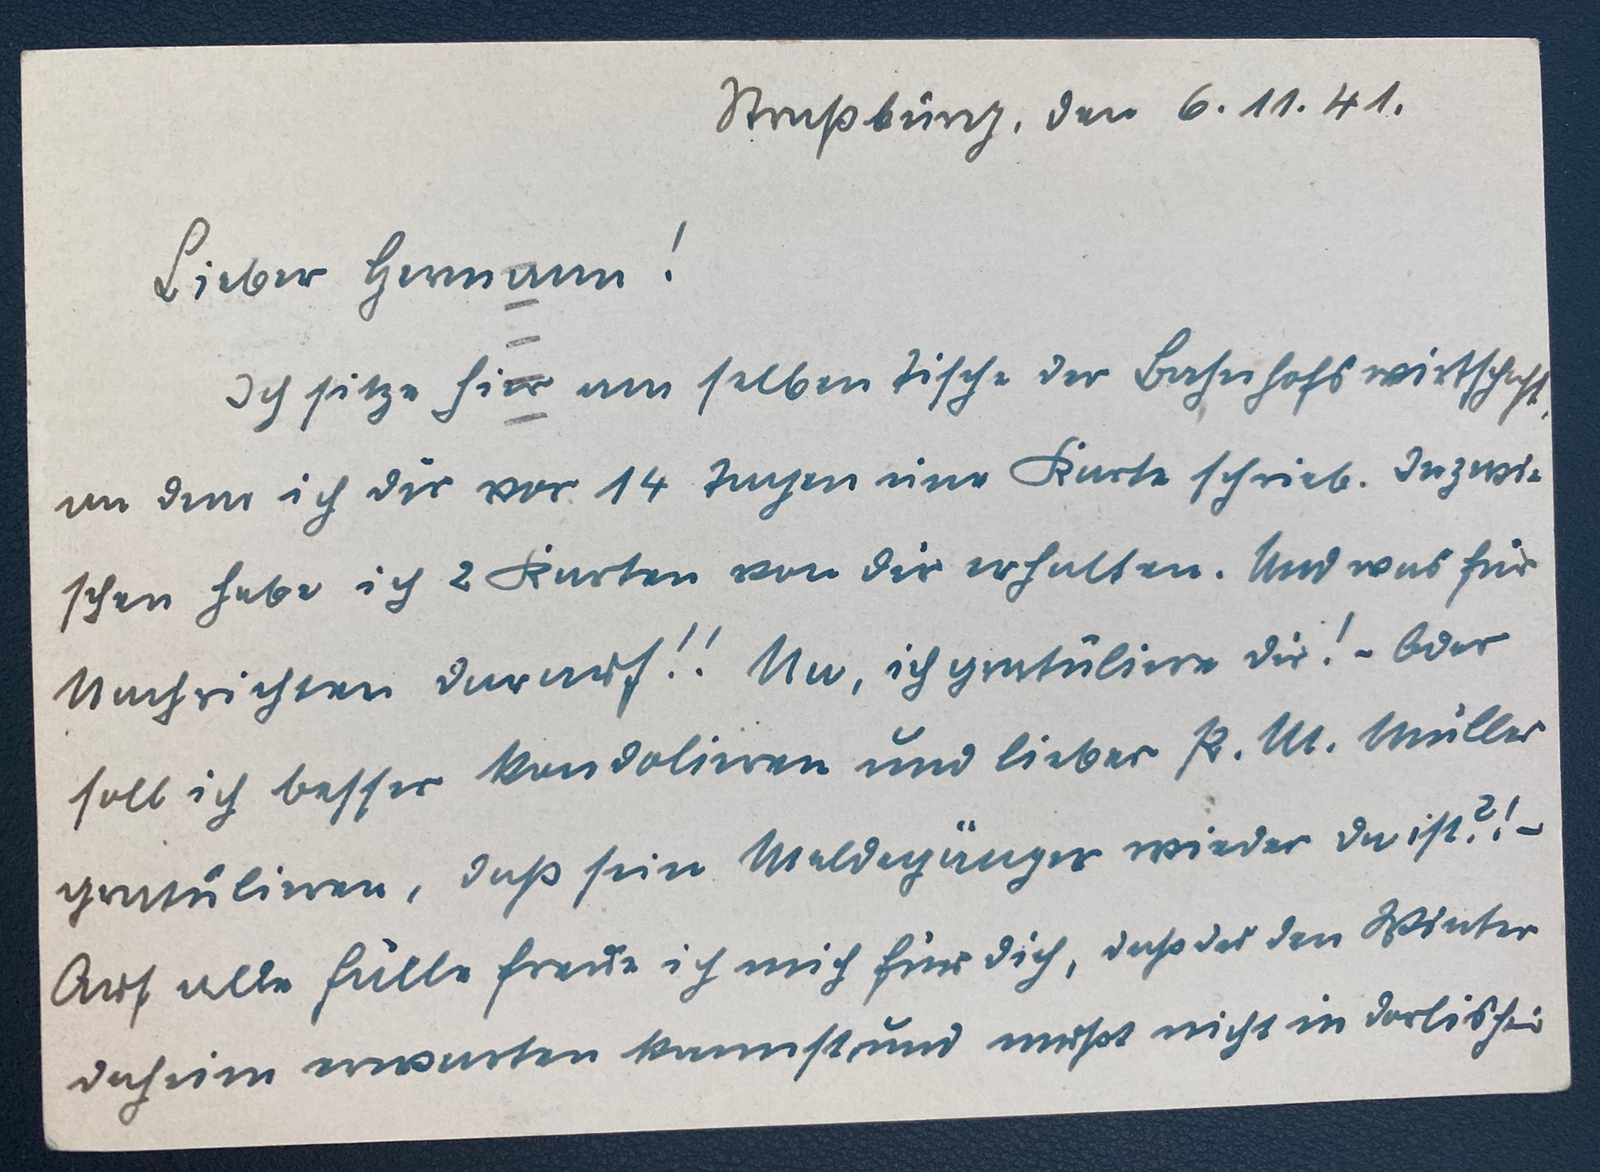 Straßburg, den 6.11.41.
Lieber Hermann!
Ich sitze hier am selben Tische der Bahnhofswirtschaft,
an dem ich dir vor 14 Tagen eine Karte schrieb. Inzwi-
schen habe ich 2 Karten von dir erhalten. Und was für
Nachrichten darauf!! Na, ich gratuliere dir! - Oder
soll ich besser kondolieren und lieber P. M. Müller
gratulieren, daß sein Meldegänger wieder da ist?! -
Auf alle Fälle freue ich mich für dich, daß du den Winter
daheim erwarten kannst und mußt nicht in